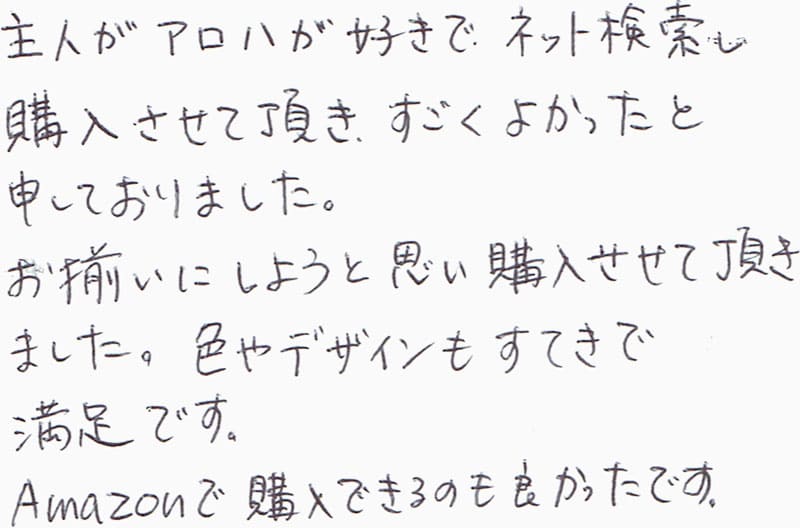 主人がアロハが好きで、ネット検索し
購入させて頂き、すごくよかったと
申しておりました。
お揃いにしようと思い購入させて頂き
ました。色やデザインもすてきで
満足です。
Amazonで購入できるのも良かったです。